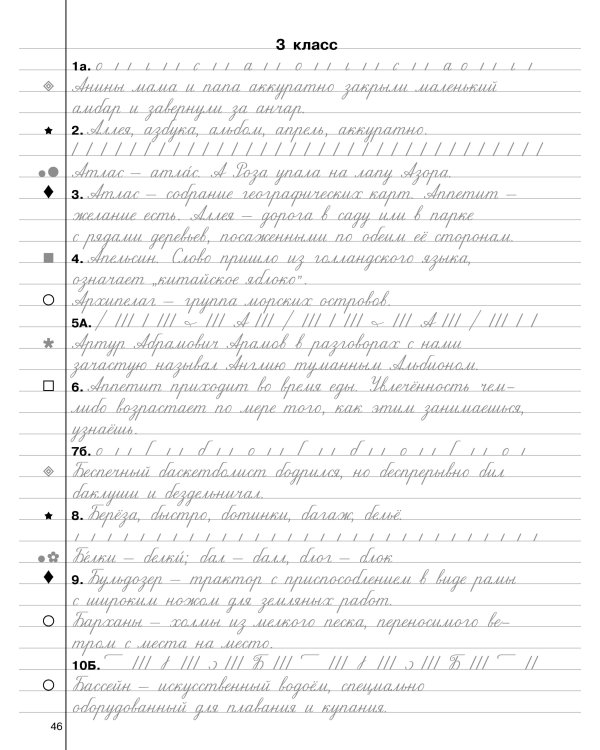 3 класс
1а. о / / ι / с / / а / / о / / ι / / с / / а о / / ι ι
Анины мама и папа аккуратно закрыли маленький
амбар и завернули за анчар.
2. Аллея, азбука, альбом, апрель, аккуратно.
/ / / / / / / / / / / / / / / / / / / / / / / /
Атлас – атла́с. А Роза упала на лапу Азора.
3. Атлас – собрание географических карт. Аппетит –
желание есть. Аллея – дорога в саду или в парке
с рядами деревьев, посаженными по обеим её сторонам.
4. Апельсин. Слово пришло из голландского языка,
означает „китайское яблоко".
Архипелаг – группа морских островов.
5А. / /// / /// ~ /// А /// / /// / /// ~ /// А /// / /// / /
Артур Абрамович Арамов в разговорах с нами
зачастую называл Англию туманным Альбионом.
6. Аппетит приходит во время еды. Увлечённость чем–
либо возрастает по мере того, как этим занимаешься,
узнаёшь.
7б.
Беспечный баскетболист бодрился, но беспрерывно бил
баклуши и бездельничал.
8. Берёза, быстро, ботинки, багаж, бельё.
/ / / / / / / / / / / / / / / / / / / / / / / /
Бе́лки – белки́; бал – балл, блог – блок
9. Бульдозер – трактор с приспособлением в виде рамы
с широким ножом для земляных работ.
Барханы – холмы из мелкого песка, переносимого ве–
тром с места на место.
10Б.
Бассейн – искусственный водоём, специально
оборудованный для плавания и купания.
46